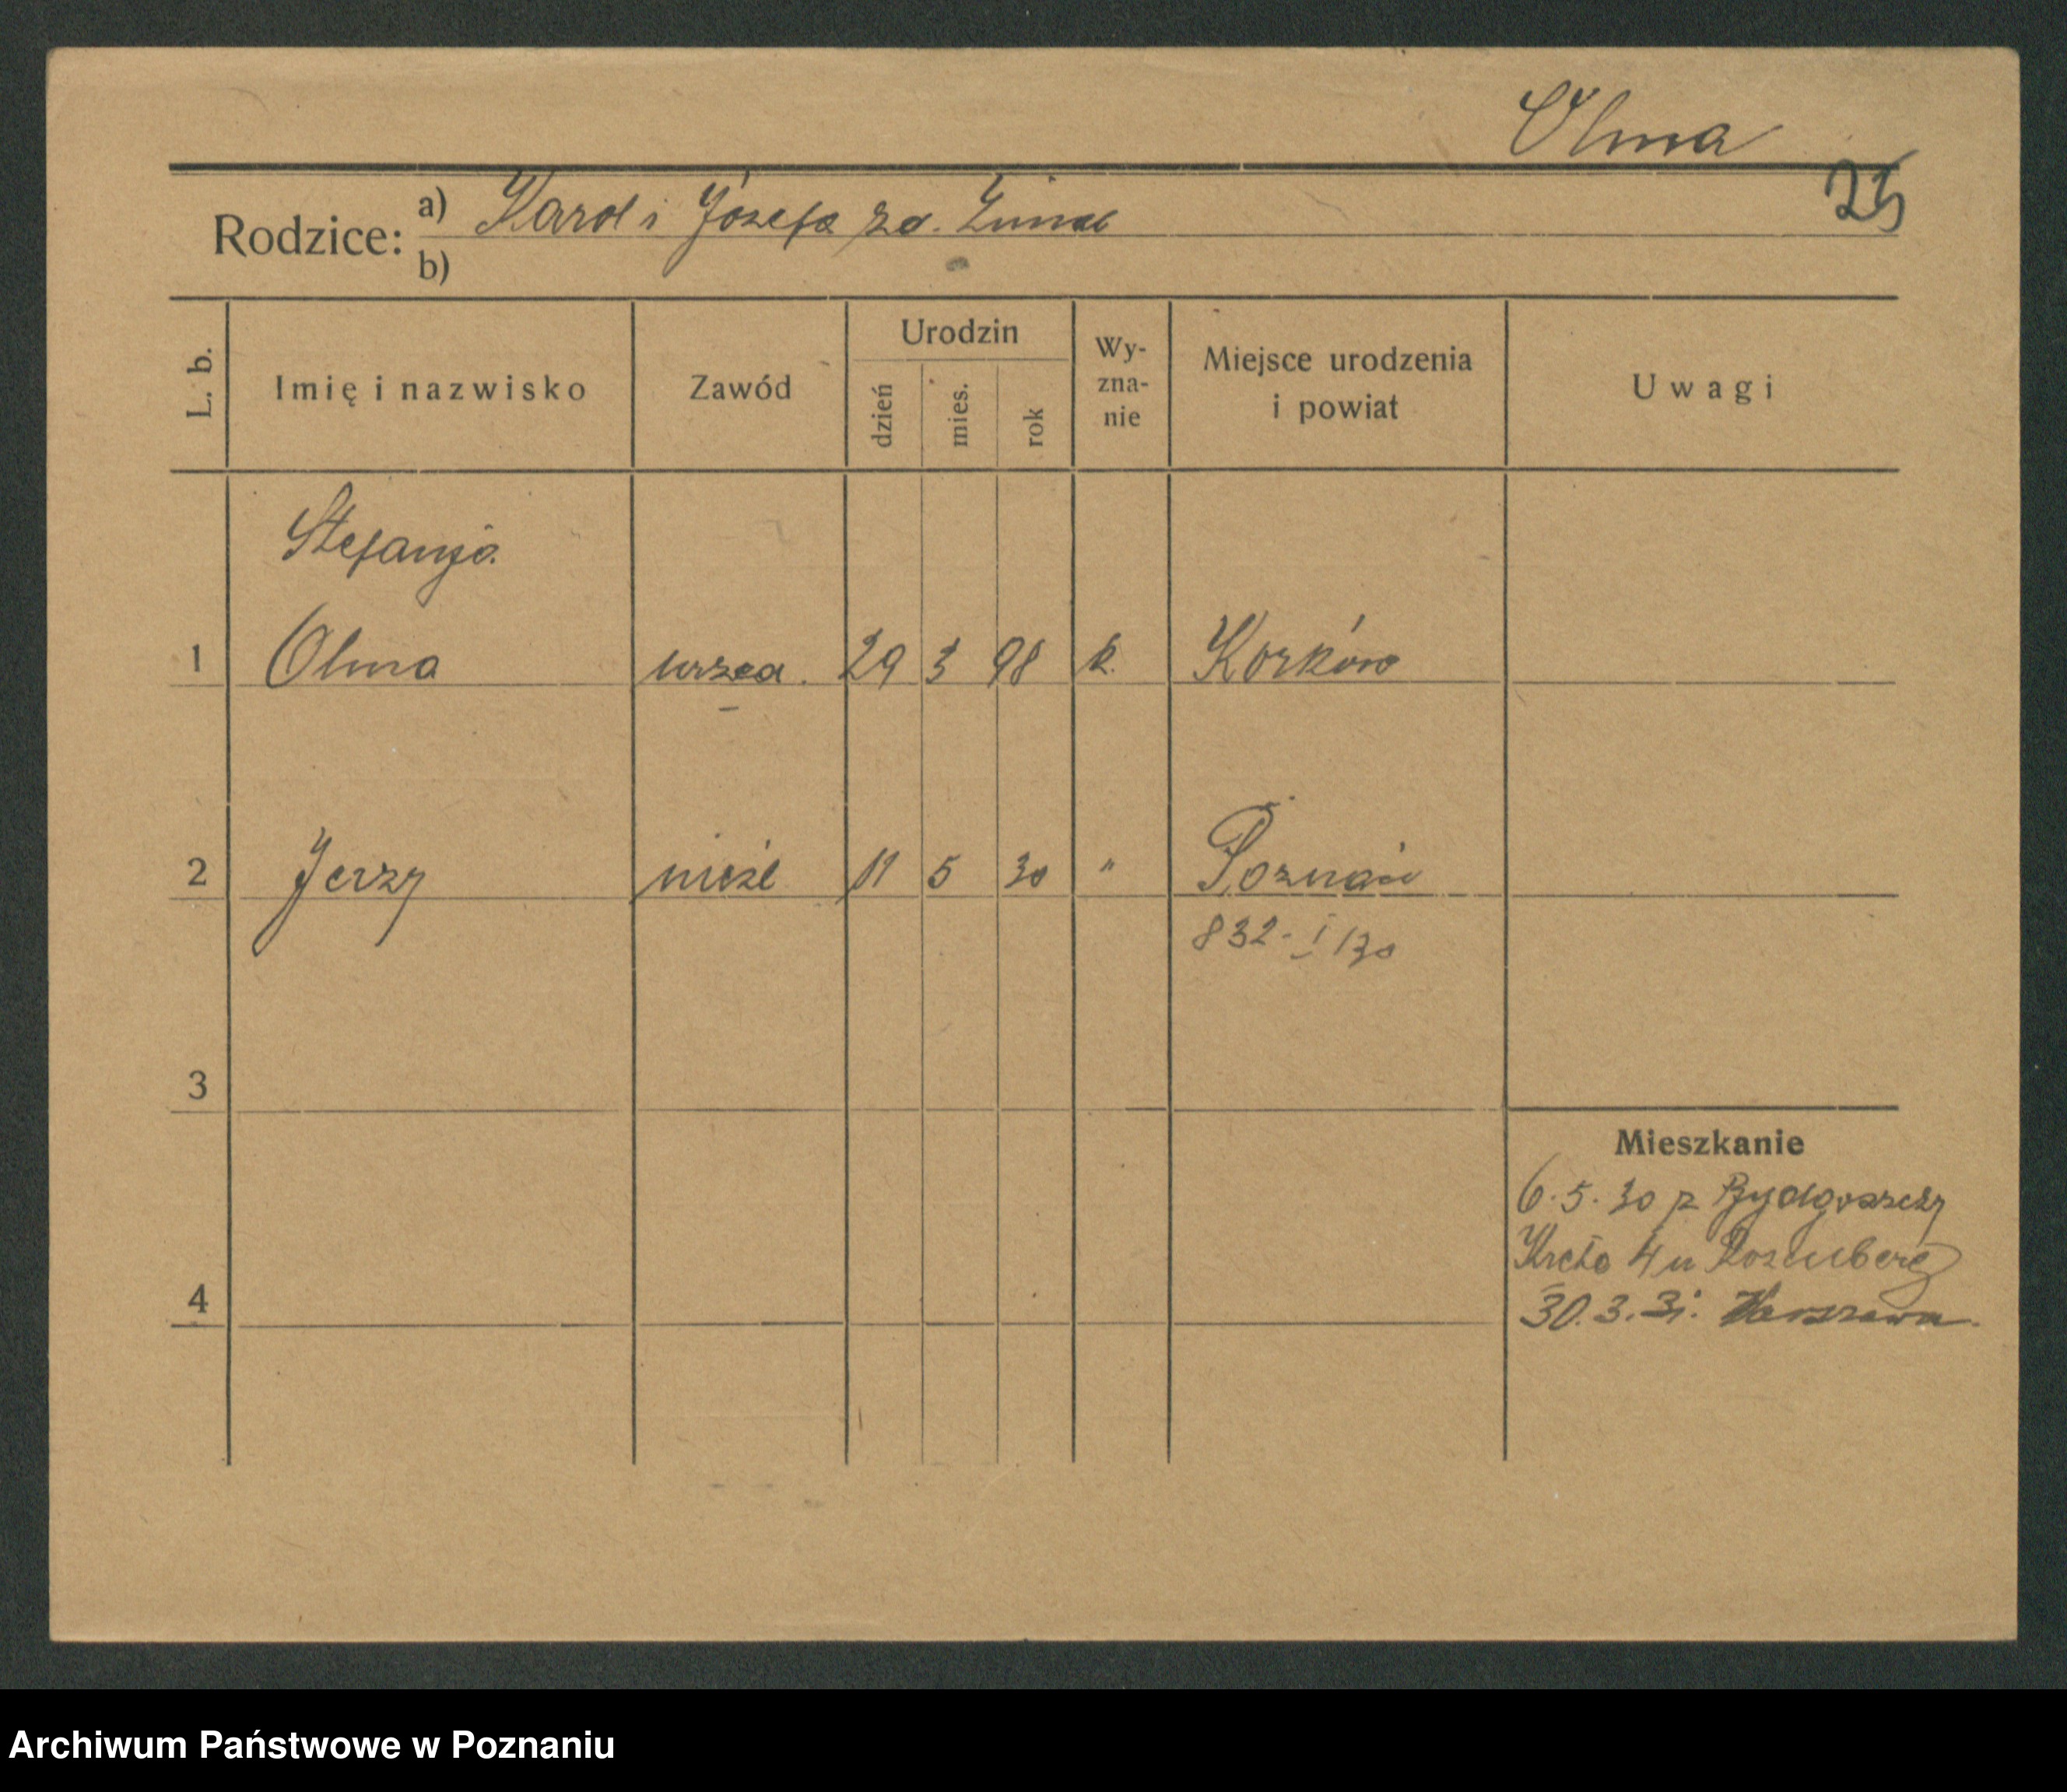 Olma
25
Rodzice: a) Karol i Józefa zd.
b)
L. b.
Imię i nazwisko
Zawód
Urodzin
dzień
mies.
rok
Wy-
zna-
nie
Miejsce urodzenia
i powiat
Uwagi
Stefanja
1 Olma urzęd. 29 3 98 k. Korków
2 Jerzy nieśl 11 5 30 " Poznań
832-I/30
3
Mieszkanie
6.5.30 z Bydgoszczy
Kręta 4 u Rosenberg
4
30.3.31. Warszawa.
Archiwum Państwowe w Poznaniu